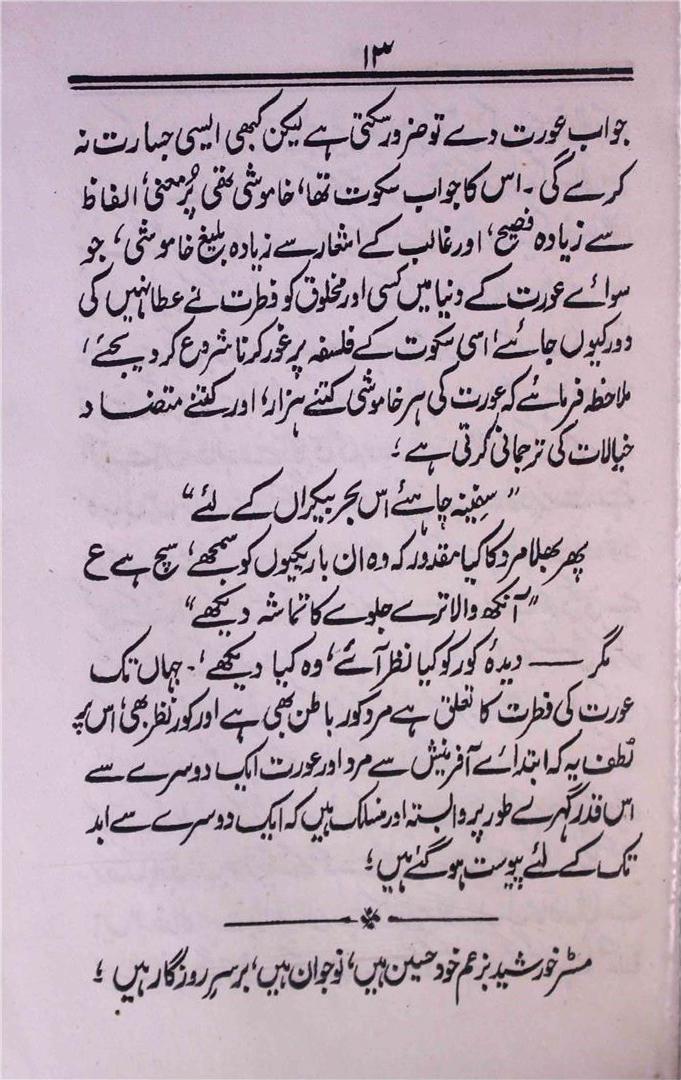 ۱۳
جواب عورت دے تو ضرور سکتی ہے لیکن کبھی ایسی جسارت نہ
کرے گی ۔ اس کا جواب سکوت تھا، خاموشی تھی پُر معنی، الفاظ
سے زیادہ فصیح، اور غالب کے اشعار سے زیادہ بلیغ خاموشی، جو
سوائے عورت کے دنیا میں کسی اور مخلوق کو فطرت نے عطا نہیں کی
دور کیوں جائیے، اسی سکوت کے فلسفہ پر غور کرنا شروع کر دیجئے،
ملاحظہ فرمائیے کہ عورت کی ہر خاموشی کتنے ہزار، اور کتنے متضاد
خیالات کی ترجمانی کرتی ہے ؛
”سفینہ چاہئے اس بحرِ بیکراں کے لئے“
پھر بھلا مرد کا کیا مقدور کہ وہ ان باریکیوں کو سمجھے، سچ ہے ع
”آنکھ والا ترے جلوے کا تماشہ دیکھے“
مگر — دیدۂ کور کو کیا نظر آئے، وہ کیا دیکھے، ۔ جہاں تک
عورت کی فطرت کا تعلق ہے مرد کور باطن بھی ہے اور کور نظر بھی، اس پر
لُطف یہ کہ ابتدائے آفرینش سے مرد اور عورت ایک دوسرے سے
اس قدر گہرے طور پر وابستہ اور منسلک ہیں کہ ایک دوسرے سے ابد
تک کے لئے پیوست ہو گئے ہیں ؛
مسٹر خورشید بزعم خود حسین ہیں، نوجوان ہیں، برسرِ روزگار ہیں ؛